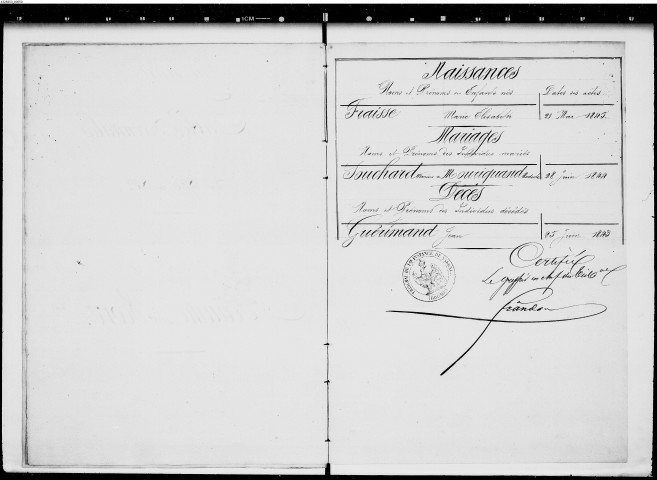 Naissances
Noms et Prénoms des Enfants nés Dates des actes
Fraisse Marie Elisabeth 21 Mai 1845.
Mariages
Noms et Prénoms des Individus mariés
28 Juin 1844
Décès
Noms et Prénoms des Individus décédés
Guérimand Jean 25 Juin 1843
Certifié
Le greffier en chef du